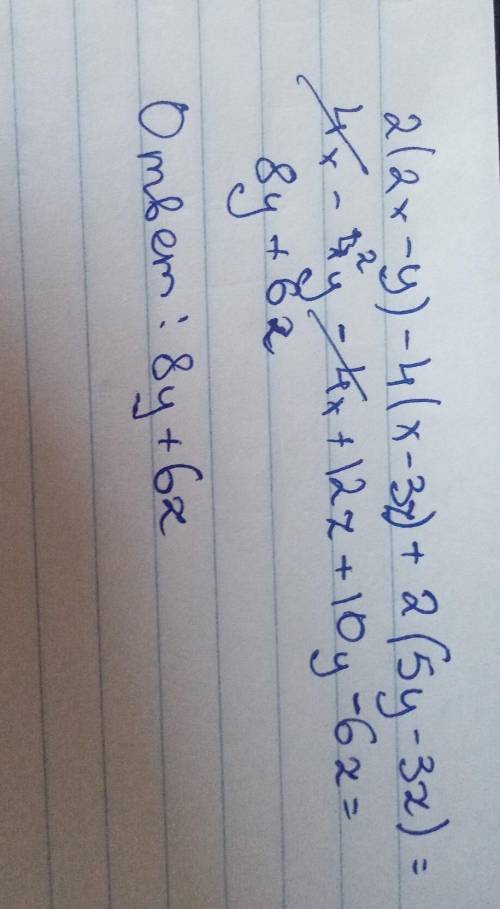 2(2x-y)-4(x-3z)+2(5y-3z)=
4x-2y-4x+12z+10y-6z=
8y+6z
Ответ: 8y+6z